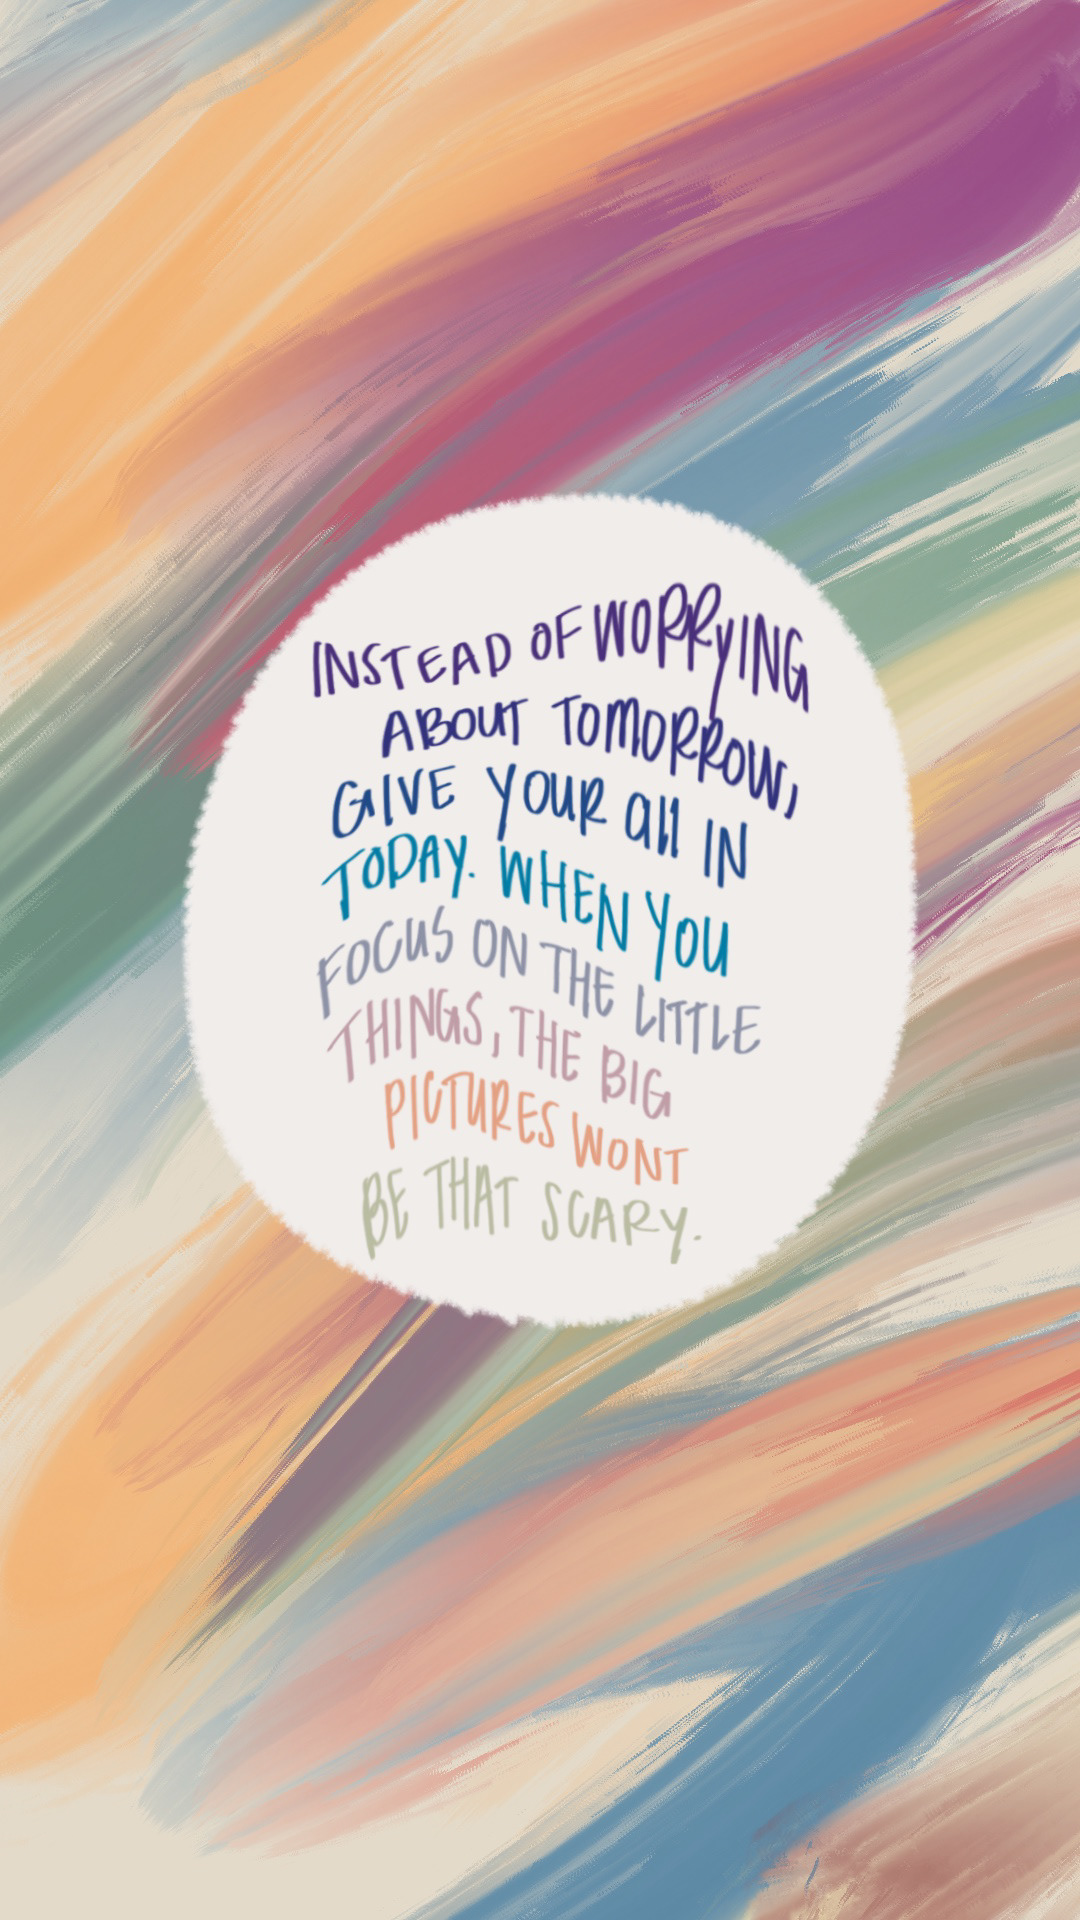 INSTEAD OF WORRYING
ABOUT TOMORROW,
GIVE YOUR all IN
TODAY. WHEN YOU
FOCUS ON THE LITTLE
THINGS, THE BIG
PICTURES WONT
BE THAT SCARY.